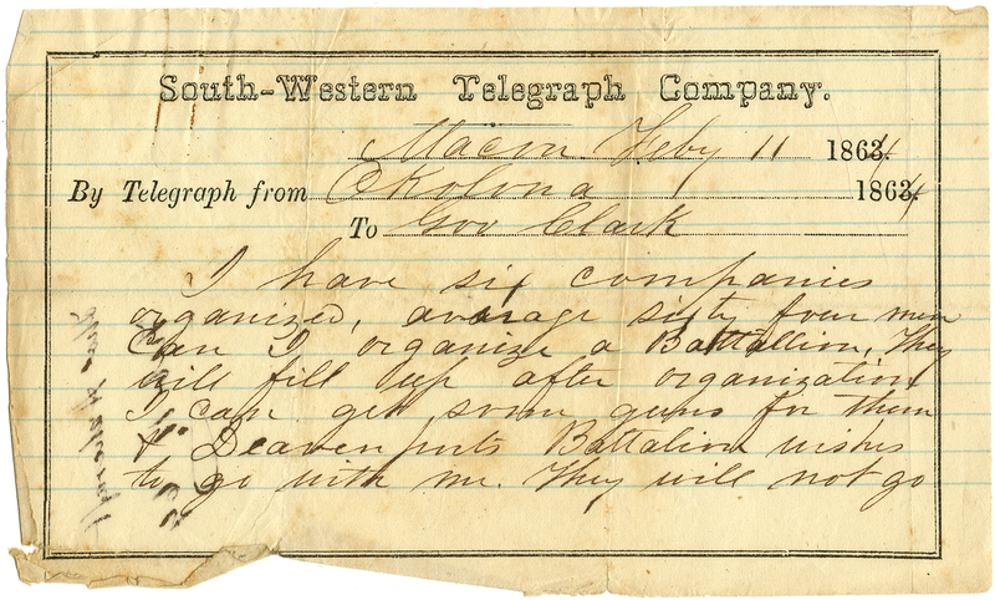 South-Western Telegraph Company.
Macon Feby 11 1864
By Telegraph from Okolona 1864
To Gov Clark
I have six companies
organized, average sixty four men
Can I organize a Battallion, They
will fill up after organization
I can get some guns for them
& Deavenports Battalion wishes
to go with me. They will not go